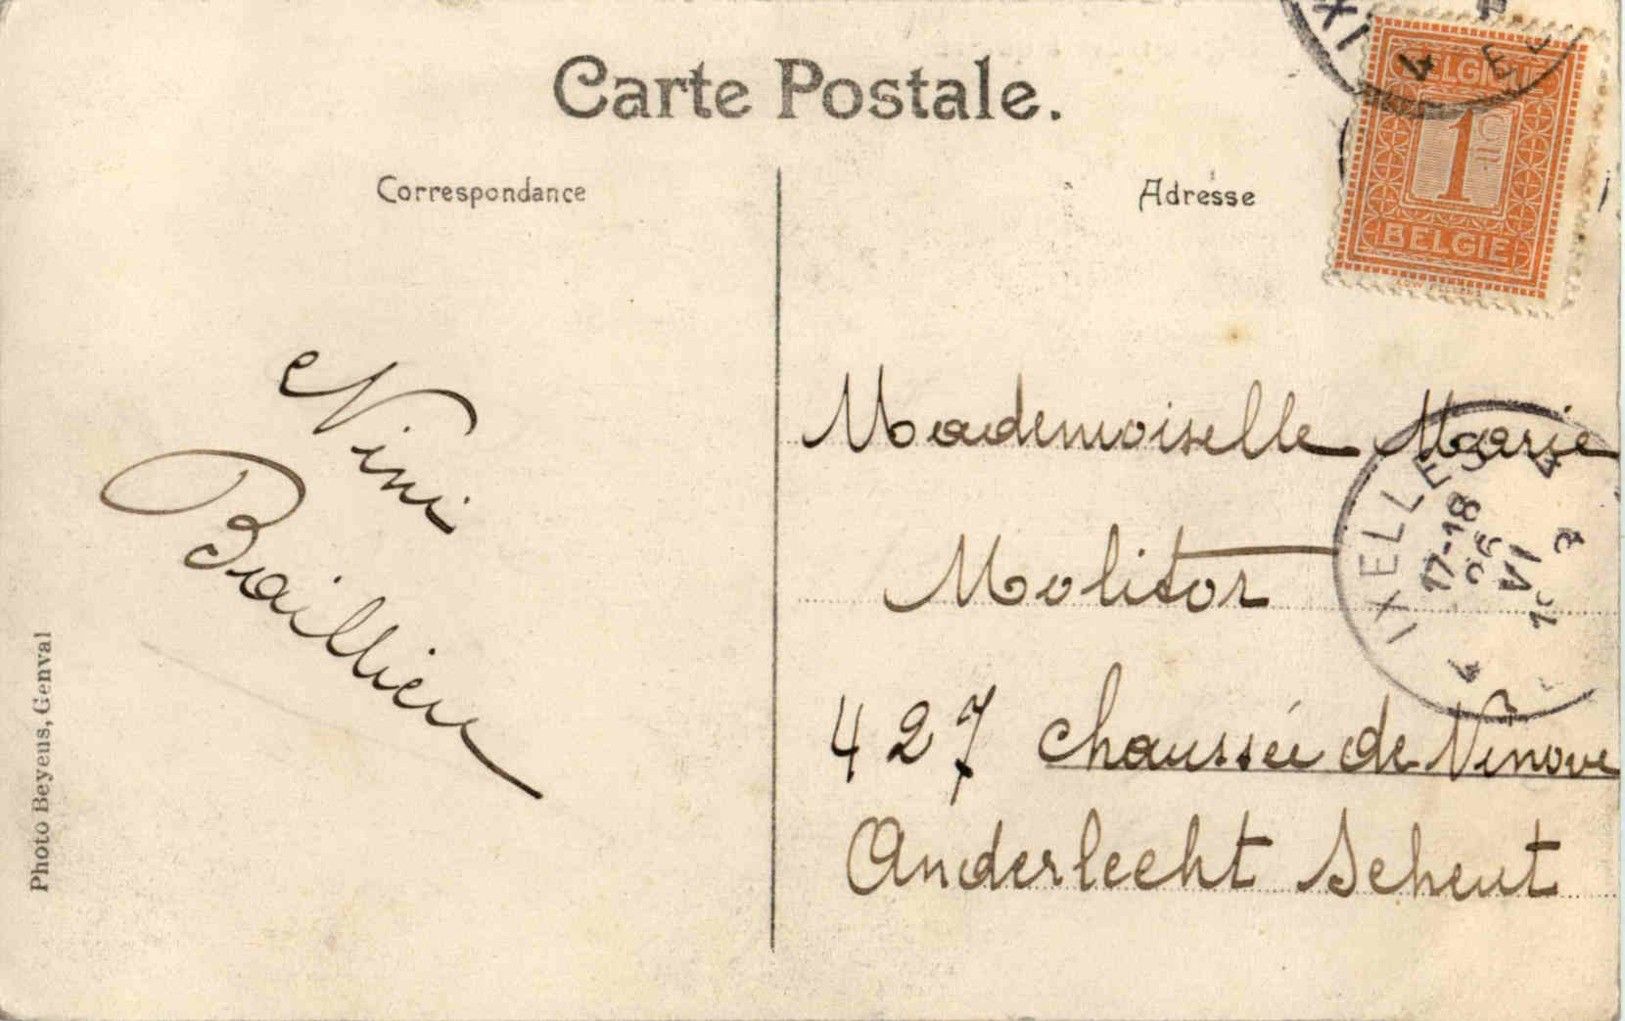 Carte Postale.
Correspondance
Adresse
BELGIQUE
1
BELGIE
Nini
Baillieu
Mademoiselle Marie
Molitor
427 chaussée de Ninove
Anderlecht Scheut
IXELLES
17-18
26
VI
4 4
Photo Beyens, Genval